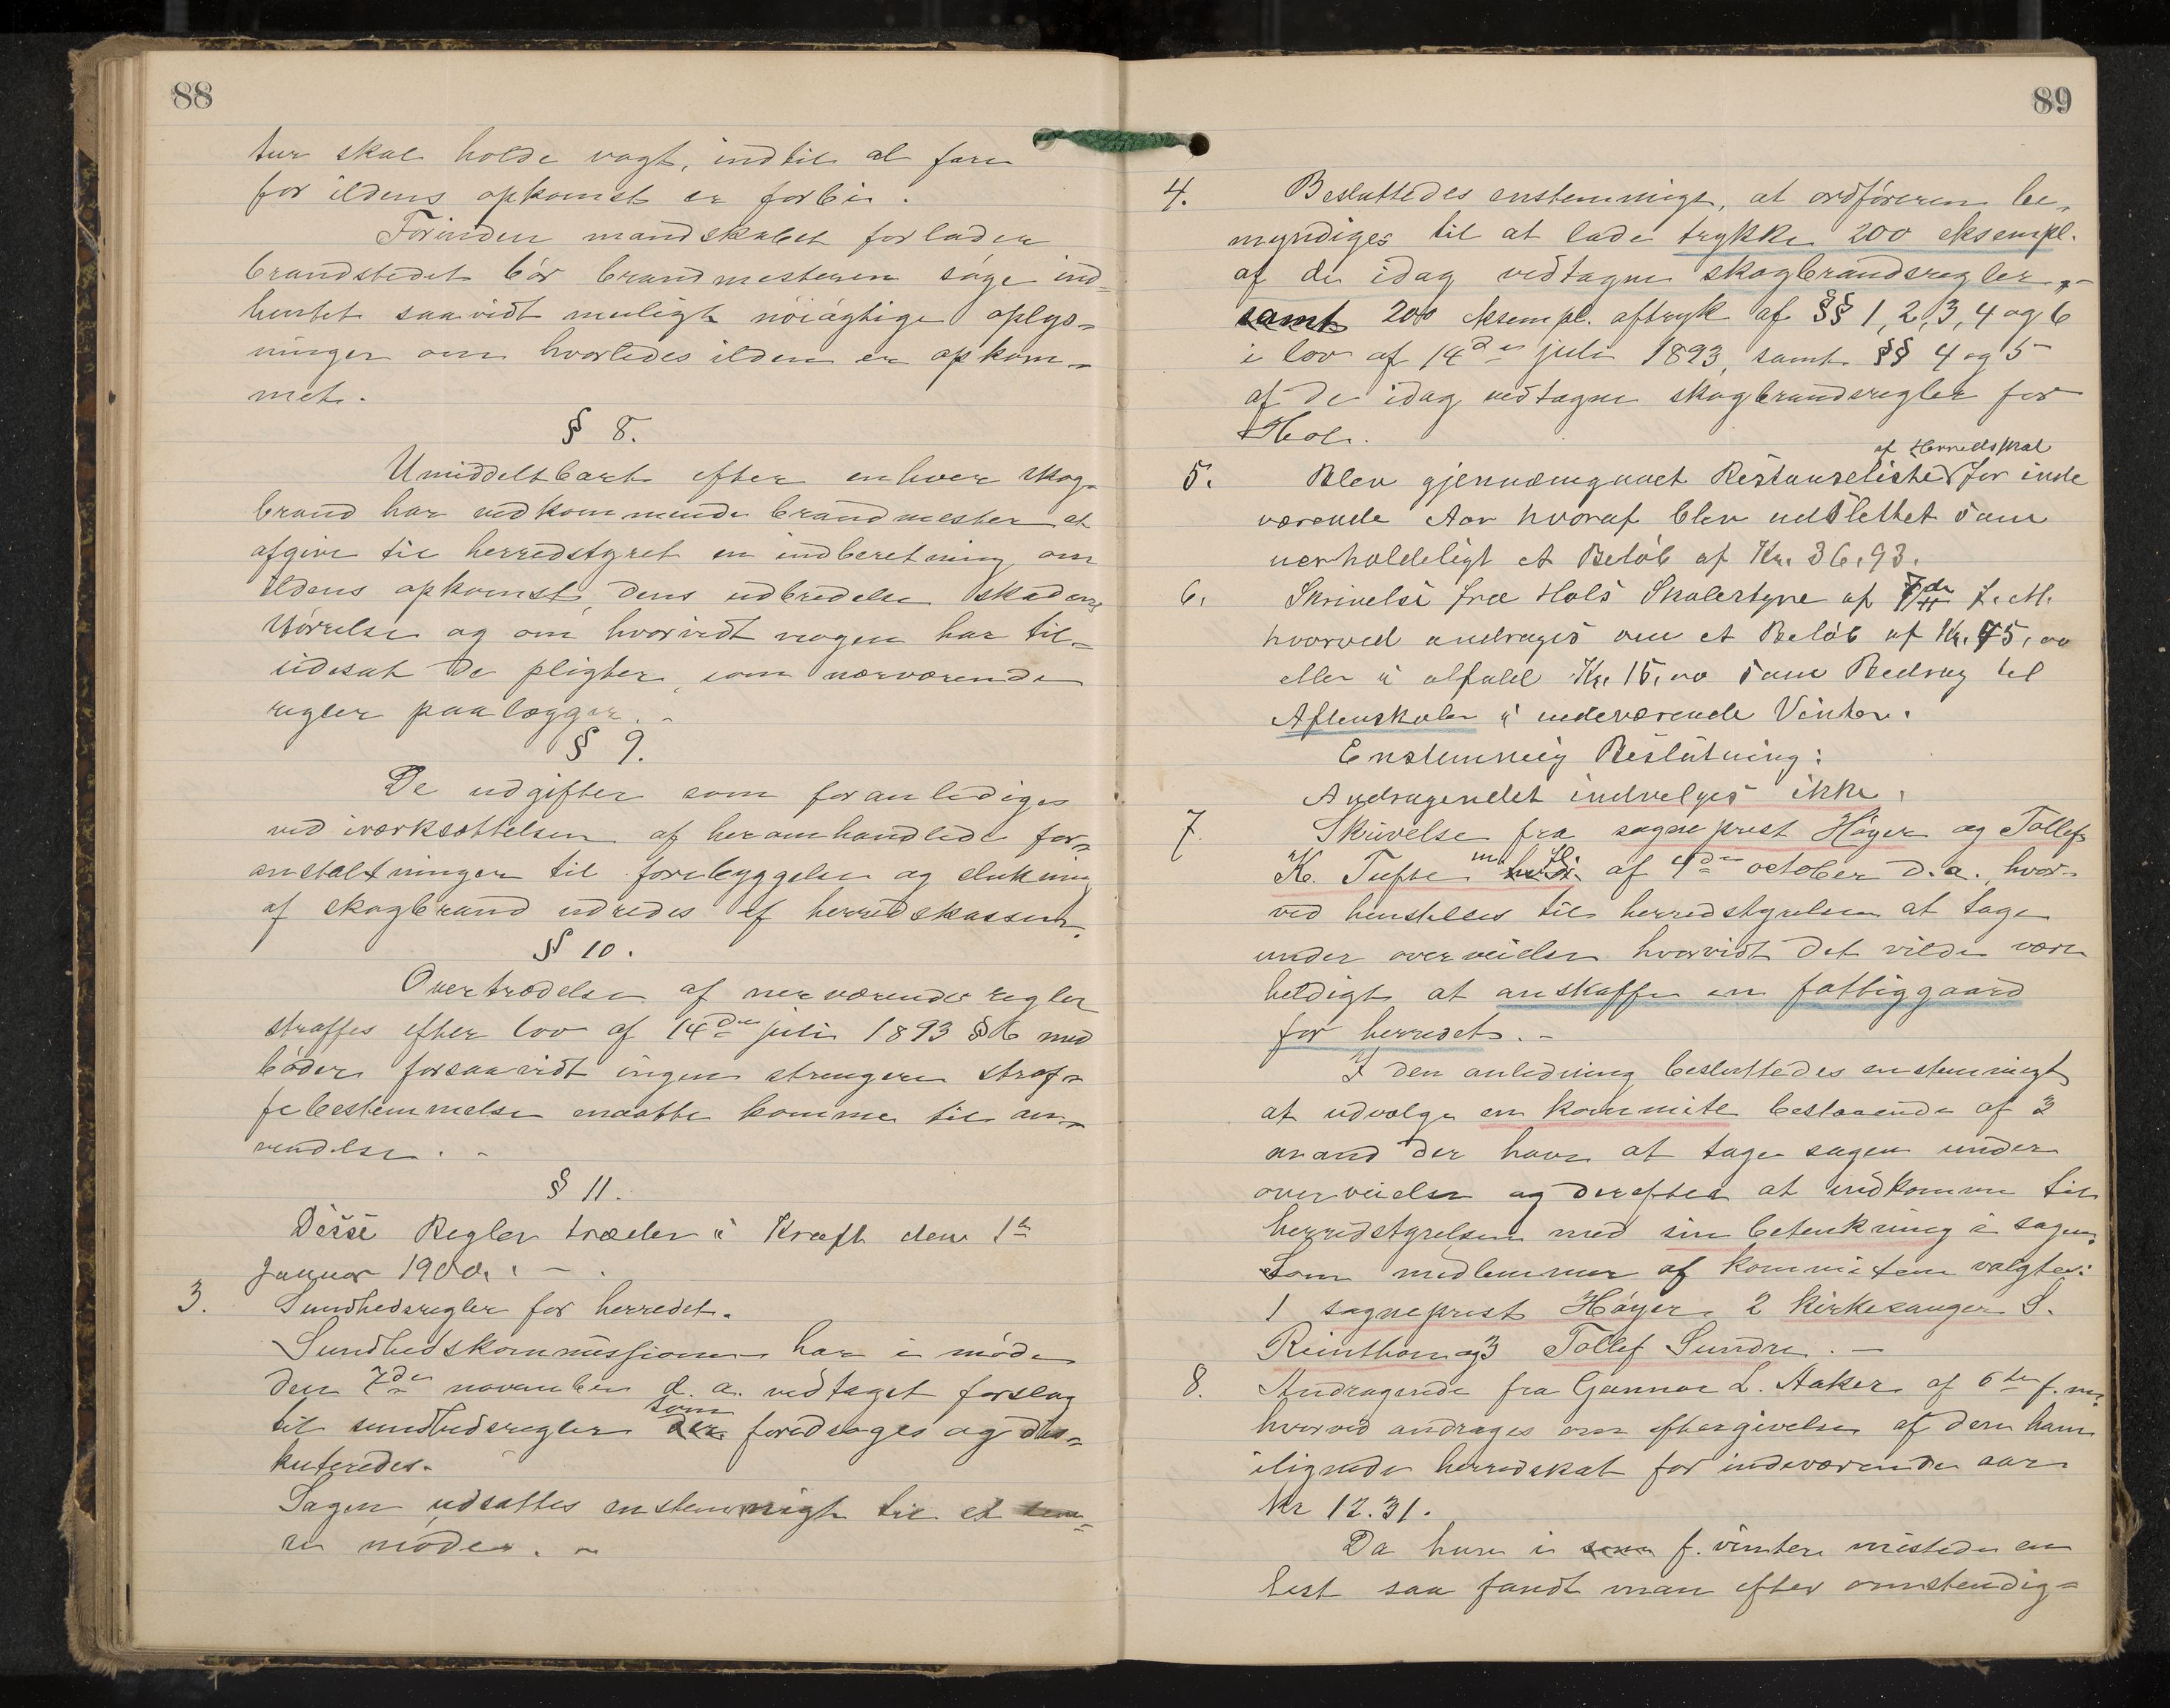 88
tur skal holde vagt, indtil al fare
for ildens opkomst er forbi.
Förinden mandskabet forlader
brandstedet bör brandmesteren söge ind=
hentet saavidt muligt nöiagtige oplys=
ninger om hvorledes ilden er opkom=
met.
§ 8.
Umiddelbart efter enhver skog-
brand har vedkommende brandmester at
afgive til herredstyret en indberetning om
ildens opkomst, dens udbredelse skadens
störrelse og om hvorvidt nogen har til=
sidesat de pligter, som nærværende
regler paalægger. -
§ 9.
De udgifter som foranlediges
ved iværksættelsen af heromhandlede for=
anstaltninger til forebyggelse og slukning
af skogbrand udredes af herredskassen.
§ 10.
Overtrædelse af nerværende regler
straffes efter lov af 14de juli 1893 § 6 med
böder forsaavidt ingen strengere straf=
febestemmelse maatte komme til an=
vendelse. -
§ 11.
Disse Regler træder i Kraft den 1te
Januar 1900. -
3. Sundhedsregler for herredet.
Sundhedskommissionen har i möde
den 7de november d. a. vedtaget forslag
til sundhedsregler der som foredroges og dis=
kuteredes.
Sagen udsattes enstemmigt til et
re möde. -
89
4. Besluttedes enstemmigt, at ordföreren be=
myndiges til at lade trykke 200 eksempl.
af de idag vedtagne skogbrandsregler, -
samt 200 eksempl. aftryk af §§ 1, 2, 3, 4 og 6
i lov af 14de juli 1893, samt §§ 4 og 5
af de idag vedtagne skogbrandsregler for
Hol.
af Herredsskat
5. Blev gjennemgaaet Restanseliste for inde
værende Aar hvoraf blev udslettet som
uerholdeligt et Belöb af Kr. 36,93.
6. Skrivelse fra Hols Skolestyre af 7de f. M.
hvorved andrages om et Belöb af Kr. 75,00
eller i alfald Kr. 15,00 som Bedrag til
Aftenskoler i indeværende Vinter.
Enstemmig Beslutning:
Andragendet indvelges ikke.
7 Skrivelse fra sogneprest Höyer og Tollef
K. Tufte m. fl. af 4de october d. a., hvor-
ved henstilles til herredstyrelsen at tage
under overveielse hvorvidt det vilde være
heldigt at anskaffe en fattiggaard
for herredet. -
I den anledning besluttedes enstemmigt
at udvælge en kommite bestaaende af 3
mand der have at tage sagen under
overveielse og derefter at indkomme til
herredstyrelsen med sin betenkning i sagen.
Som medlemmer af kommiteen valgtes:
1 sogneprest Höyer, 2 kirkesanger S.
Reinthon og 3 Tollef Sundre. -
8. Andragende fra Gunnar L. Aaker af 6te f. m.
hvorved andrages om eftergivelse af den ham
ilignede herredskat for indeværende aar
kr 12.31.
Da han i som f. vinter mistede en
hest saa fandt man efter omstendig=